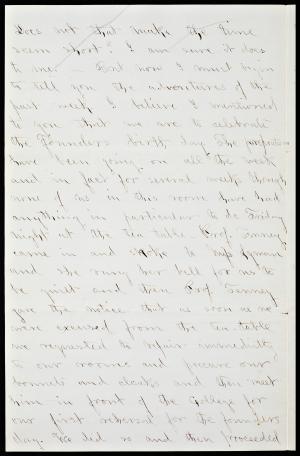 Does not that make the time
seem short? I am sure it does
to me. — But now I must begin
to tell you the adventures of the
past week. I believe I mentioned
to you that we are to celebrate
the Founders birth day. The preparations
have been going on all the week
and in fact for several weeks though
none of us in this room have had
anything in particular to do. Friday
night at the tea table Prof. Tenney
came in and spoke to Miss Lyman
and she rung her bell for us to
be quiet and then Prof. Tenney
gave the notice that as soon as we
were excused from the tea-table
we requested to repair immediately
to our rooms and procure our
bonnets and cloaks and then meet
him in front of the College for
our first rehersal for the founders
day. We did so and then proceeded